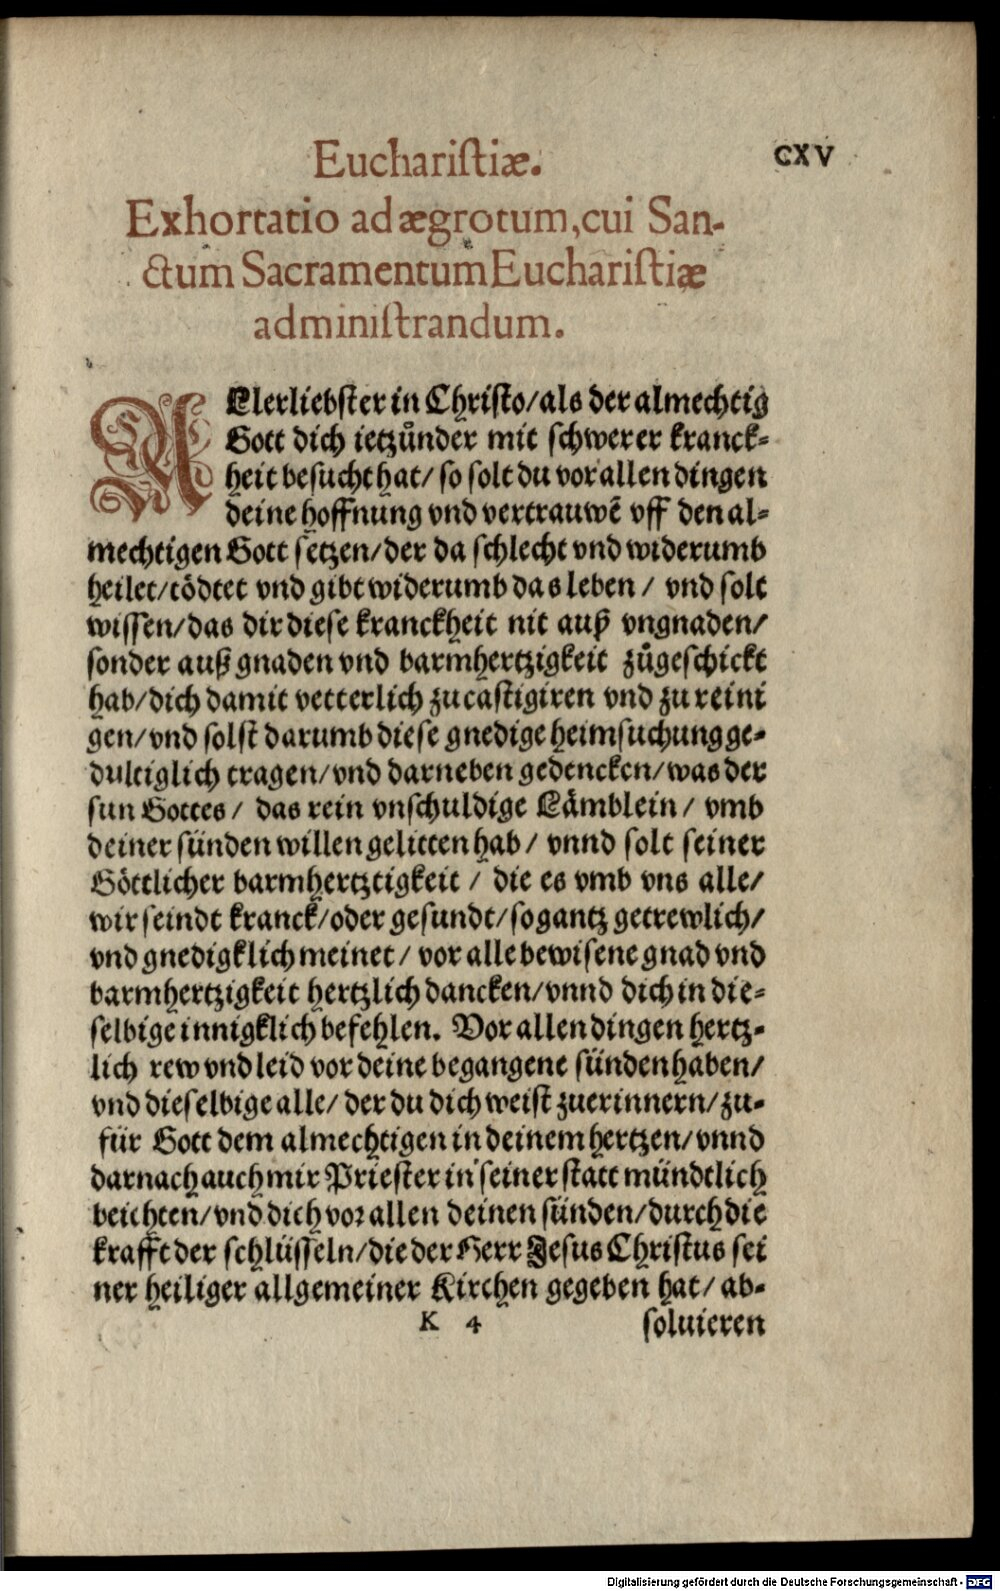 Euchariſtiæ. CXV
Exhortatio ad ægrotum, cui San-
ctum Sacramentum Euchariſtiæ
adminiſtrandum.
ALlerliebſter in Chriſto/ als der almechtig
Gott dich ietzůnder mit ſchwerer kranck-
heit beſucht hat/ ſo ſolt du vor allen dingen
deine hoffnung vnd vertrauwẽ vff den al-
mechtigen Gott ſetzen/ der da ſchlecht vnd widerumb
heilet/ tödtet vnd gibt widerumb das leben/ vnd ſolt
wiſſen/ das dir dieſe kranckheit nit auß vngnaden/
ſonder auß gnaden vnd barmhertzigkeit zůgeſchickt
hab/ dich damit vetterlich zu caſtigiren vnd zu reini
gen/ vnd ſolſt darumb dieſe gnedige heimſuchung ge-
dultiglich tragen/ vnd darneben gedencken/ was der
ſun Gottes/ das rein vnſchuldige Lämblein/ vmb
deiner ſünden willen gelitten hab/ vnnd ſolt ſeiner
Göttlicher barmhertztigkeit/ die es vmb vns alle/
wir ſeindt kranck/ oder geſundt/ ſo gantz getrewlich/
vnd gnedigklich meinet/ vor alle bewiſene gnad vnd
barmhertzigkeit hertzlich dancken/ vnnd dich in die-
ſelbige innigklich befehlen. Vor allen dingen hertz-
lich rew vnd leid vor deine begangene ſünden haben/
vnd dieſelbige alle/ der du dich weiſt zuerinnern/ zu-
für Gott dem almechtigen in deinem hertzen/ vnnd
darnach auch mir Prieſter in ſeiner ſtatt mündtlich
beichten/ vnd dich vor allen deinen ſünden/ durch die
krafft der ſchlüſſeln/ die der Herr Jeſus Chriſtus ſei
ner heiliger allgemeiner Kirchen gegeben hat/ ab-
K 4 ſoluieren
Digitalisierung gefördert durch die Deutsche Forschungsgemeinschaft - DFG